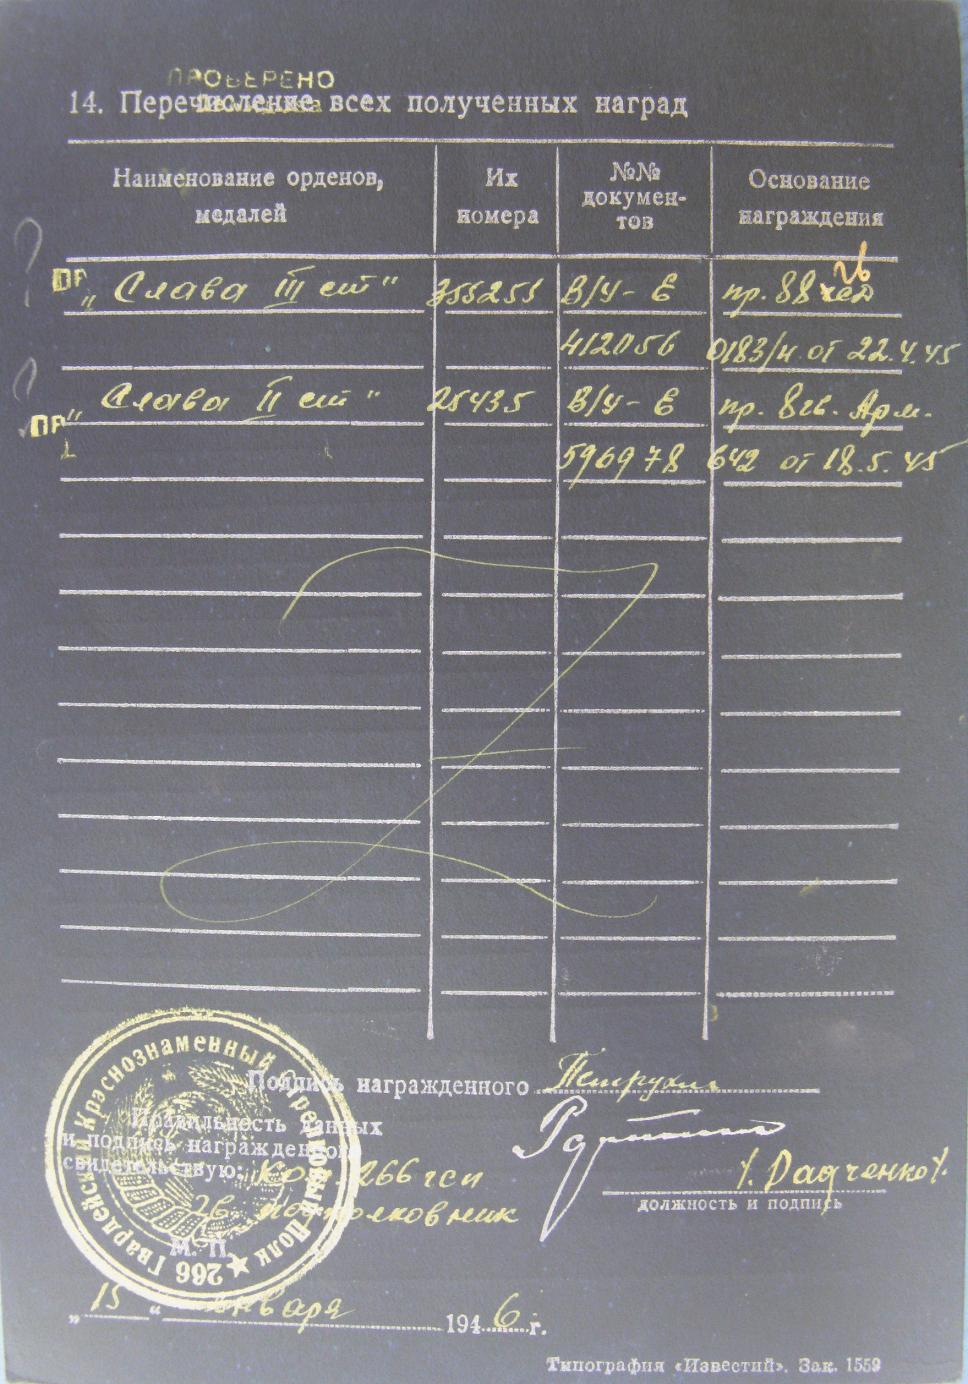 ПРОВЕРЕНО
14. Перечисление всех полученных наград
Наименование орденов, медалей
Их номера
№№ документов
Основание награждения
ПР
„Слава III ст" 755255 В/Ч - Е пр. 88 26
412056 0183/н от 22.4.45
ПР
„Слава II ст" 25435 В/Ч - Е пр. 8 гв. Арм.
596978 642 от 18.5.45
Подпись награжденного Петрухин
Правильность данных
и подпись награжденного
свидетельствую: Ком 266 гсп
гв. подполковник
/Радченко/.
должность и подпись
М. П.
266 Гвардейский Краснознаменный Стрелковый Полк
„15" января 1946 г.
Типография «Известий». Зак. 1559